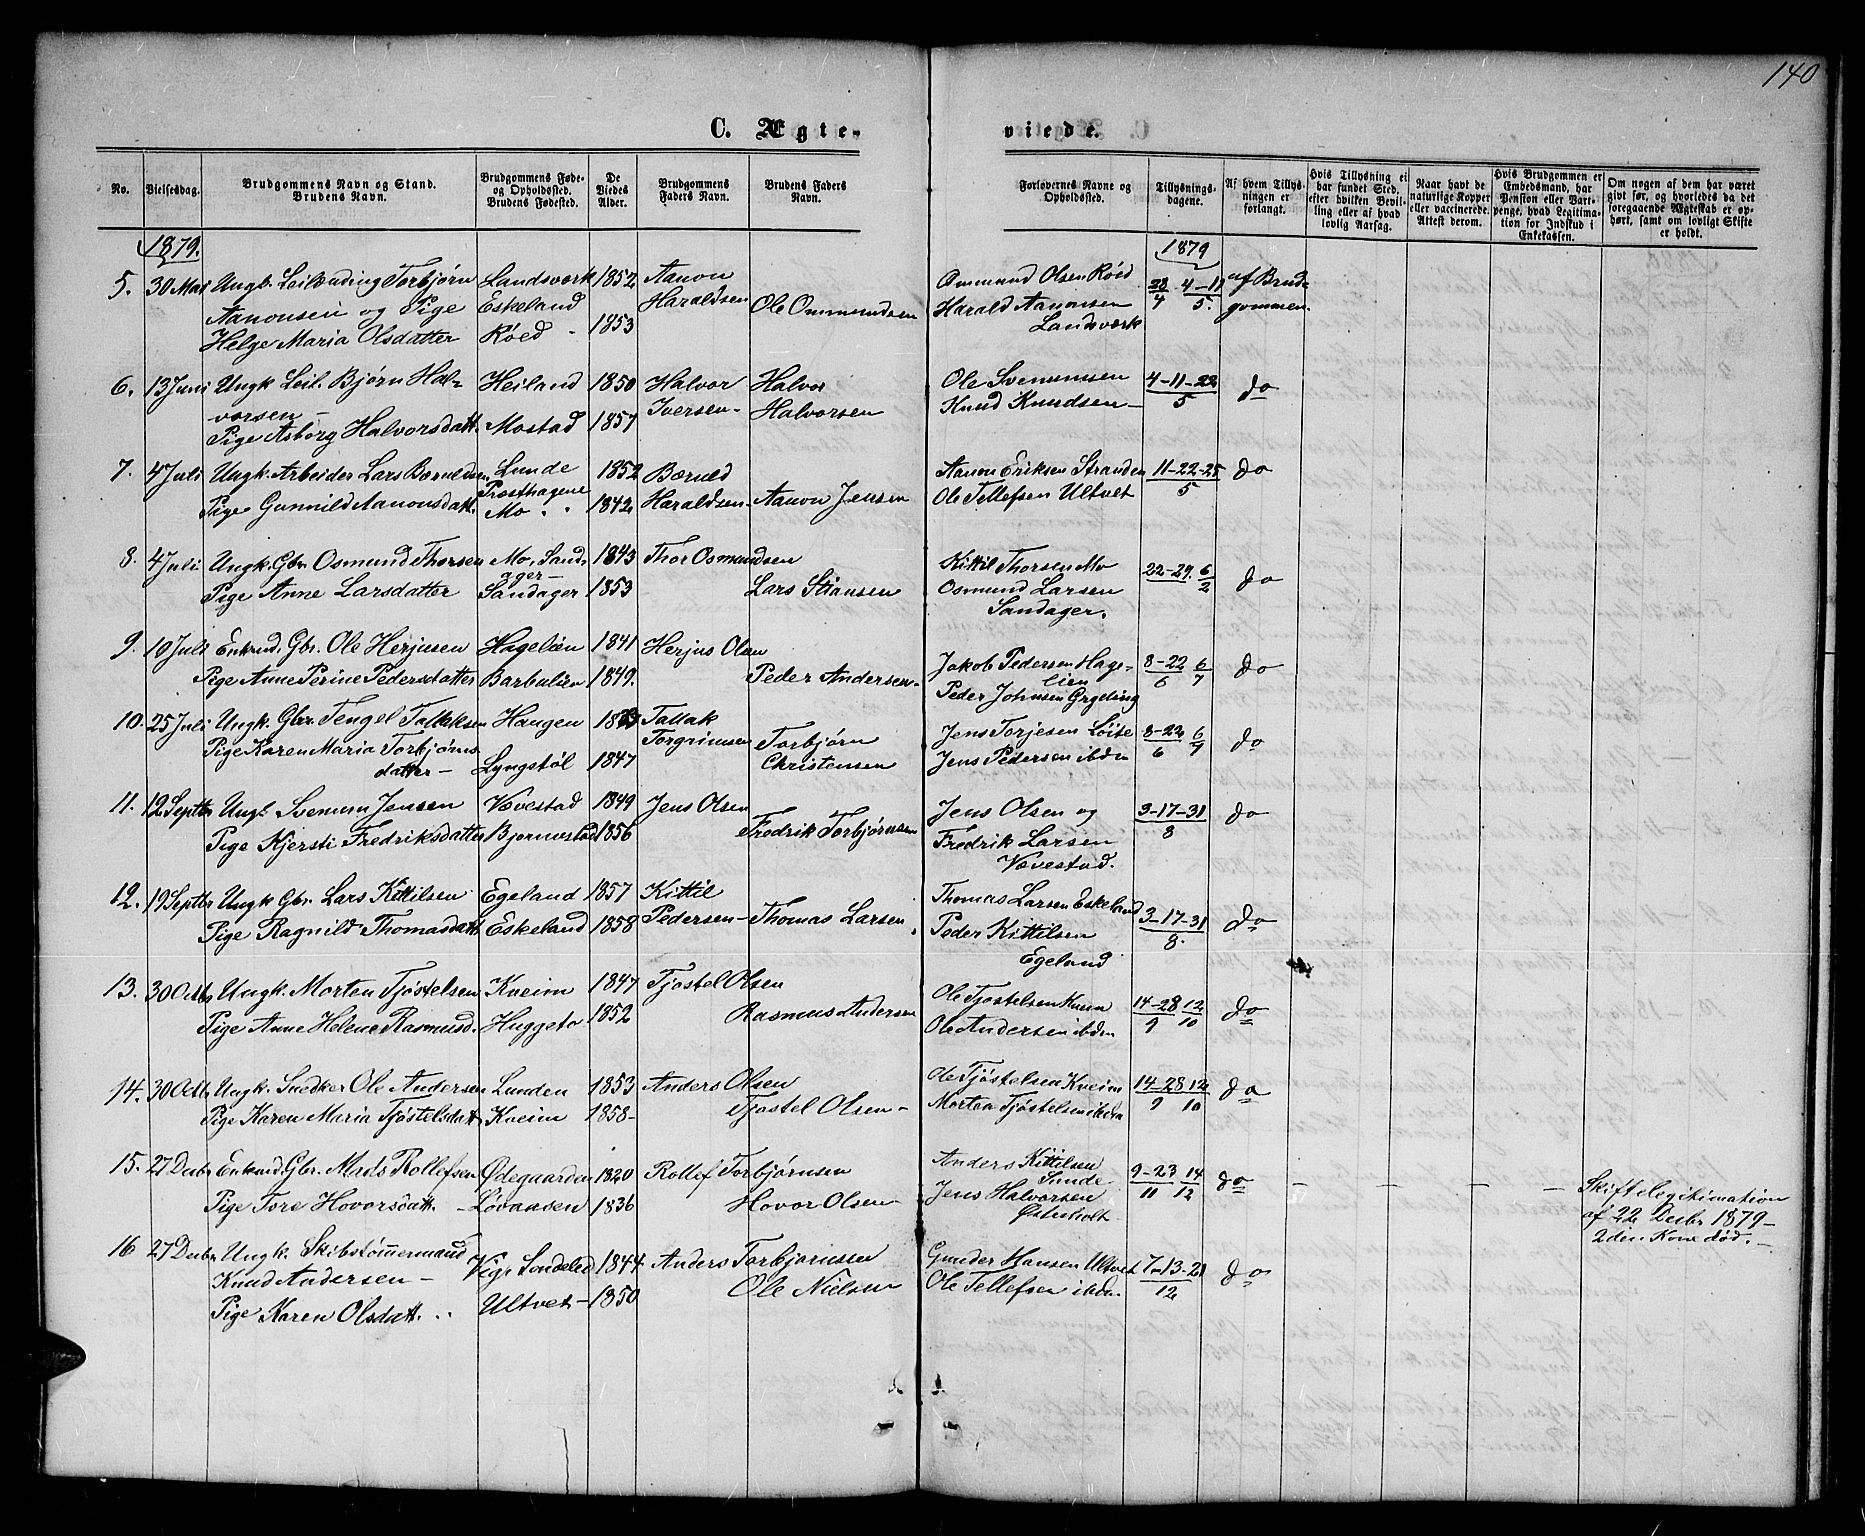 140
C. Ægte-
viede.
No.
Vielsesdag.
Brudgommens Navn og Stand.
Brudens Navn.
Brudgommens Føde-
og Opholdssted.
Brudens Fødested.
De
Viedes
Alder.
Brudgommens
Faders Navn.
Brudens Faders
Navn.
Forlovernes Navne og
Opholdssted.
Tillysnings-
dagene.
Af hvem Tillys-
ningen er
forlangt.
Hvis Tillysning ei
har fundet Sted,
efter hvilken Bevil-
ling eller af hvad
lovlig Aarsag.
Naar havt de
naturlige Kopper
eller vaccinerede.
Attest derom.
Hvis Brudgommen er
Embedsmand, har
Pension eller Vart-
penge, hvad Legitima-
tion for Indskud i
Enkekassen.
Om nogen af dem har været
gift før, og hvorledes da det
foregaaende Ægteskab er op-
hørt, samt om lovligt Skifte
er holdt.
1879.
1879
5. 30 Mai Ungk. Leilænding Torbjørn Landsverk 1852 Aanon
Aanonsen og Pige Eskeland Haraldsen Ole Ommundsen
Helge Maria Olsdatter Røed - 1853
Ommund Olsen Røed 28/4 4-11/5. af Brud-
Harald Aanonsen gommen.
Landsverk
6. 13 Juni Ungk. Leil. Bjørn Hal- Heiland 1850 Halvor Halvor
vorsen - Iversen - Halvorsen
Pige Asborg Halvorsdatt. Mostad 1857
Ole Svenumsen 4-11-22/5 do
Knud Knudsen -
7. 4 Juli Ungk. Arbeider Lars Beruldsen Lunde 1852 Beruld
Præsthagene
Pige Gunnild Aanonsdatt. Mo 1842 Haraldsen - Aanon Jensen
Aanon Eriksen Stranden 11-22-25/5 do
Ole Tellefsen Ultvet
8. 4 Juli Ungk. Gbr. Osmund Thorsen Mo, Sand- 1843 Thor Osmundsen
ager -
Pige Anne Larsdatter Sandager 1853 Lars Stiansen
Kittil Thorsen Mo 22-29. 6/2 do
Osmund Larsen
Sandager.
9. 10 Juli Enkmd. Gbr. Ole Herjusen Hagelien 1841 Herjus Olsen
Pige Anne Perine Pedersdatter Barbulien 1849. Peder Andersen -
Jakob Pedersen Hage- 8-22/6 6/7 do
lien
Peder Johnsen Grgeling
10. 25 Juli Ungk. Gbr. Tengel Tallaksen Haugen Tallak
Pige Karen Maria Torbjørns- Torgrimsen Torbjørn
datter - Lyngstøl 1847 Christensen
Jens Torjesen Løite 8-22/6 6/7 do
Jens Pedersen ibdm
11. 12 Septbr Ungk. Svenum Jensen Vævestad 1849 Jens Olsen
Pige Kjersti Fredriksdatter Bjornvestad 1856 Fredrik Torbjørnsen
Jens Olsen og 3-17-31/8 do
Fredrik Larsen
Vævestad.
12. 19 Septbr Ungk. Gbr. Lars Kittilsen Egeland 1857 Kittil
Pige Ragnild Thomasdatt Eskeland 1858 Pedersen - Thomas Larsen
Thomas Larsen Eskeland 3-17-31/8. do
Peder Kittilsen
Egeland
13. 30 Octbr Ungk. Morten Tjøstelsen Kveim 1847 Tjøstel Olsen
Pige Anne Helene Rasmusd. Huggeto 1852 Rasmus Andersen
Ole Tjøstelsen Kveim 14-28/9 12/10 do
Ole Andersen ibdm
14. 30 Octb Ungk. Snedker Ole Andersen Lunden 1853 Anders Olsen
Pige Karen Maria Tjøstelsdatt. Kveim 1858 - Tjøstel Olsen -
Ole Tjøstelsen Kveim 14-28/9 12/10 do
Morten Tjøstelsen ibdm
15. 27 Decbr Enkmd. Gbr. Mads Rollefsen Ødegaarden 1820 Rollef Torbjørnsen
Pige Tore Hovorsdatt. - Løvaasen 1836 Hovor Olsen -
Anders Kittilsen 9-23/11 14/12 do - - - -
Sunde
Jens Halvorsen
Østerholt
Skiftelegitimation
af 22 Decbr 1879 -
2den Kone død. -
16 27 Decbr Ungk. Skibstømmermand Vig, Søndeled 1844 Anders Torbjørnsen
Knud Andersen - Ole Nielsen
Pige Karen Olsdatt. Ultvet - 1850
Gunder Hansen Ultvet 7-13-21/12 do
Ole Tellefsen ibdm.